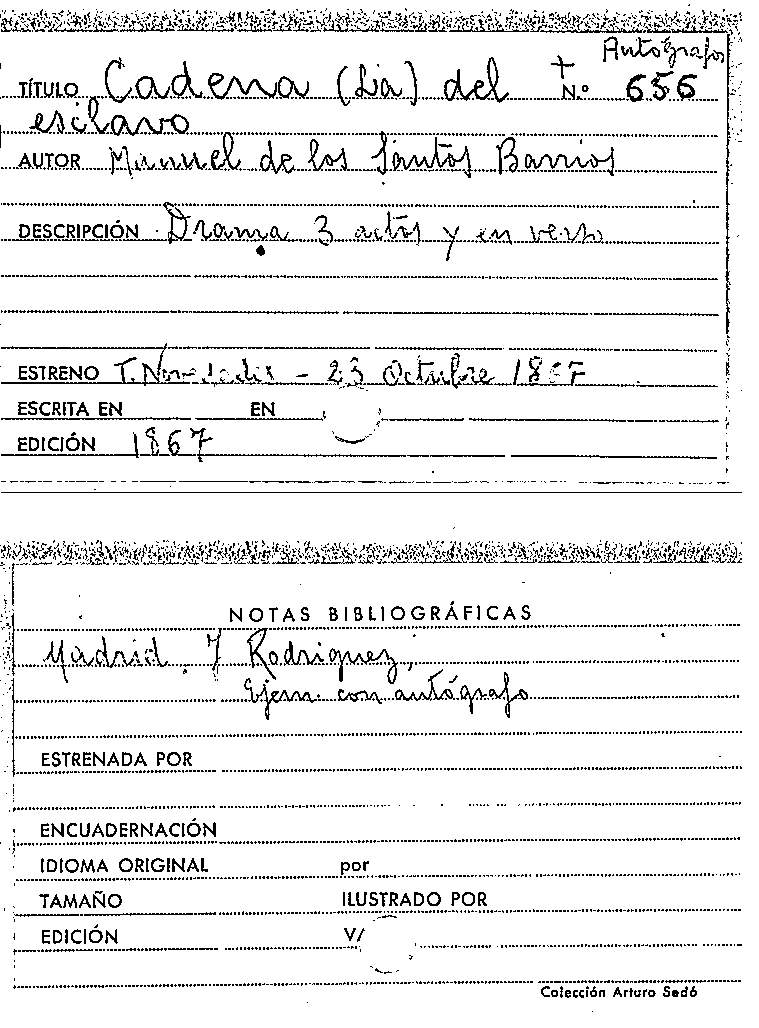 Autógrafos
TÍTULO Cadena (La) del + N.º 656
esclavo
AUTOR Manuel de los Santos Barrios
DESCRIPCIÓN Drama 3 actos y en verso
ESTRENO T. Novedades - 23 Octubre 1867
ESCRITA EN EN
EDICIÓN 1867
NOTAS BIBLIOGRÁFICAS
Madrid. J Rodriguez,
Ejem. con autógrafo
ESTRENADA POR
ENCUADERNACIÓN
IDIOMA ORIGINAL por
TAMAÑO ILUSTRADO POR
EDICIÓN V/
Colección Arturo Sedó